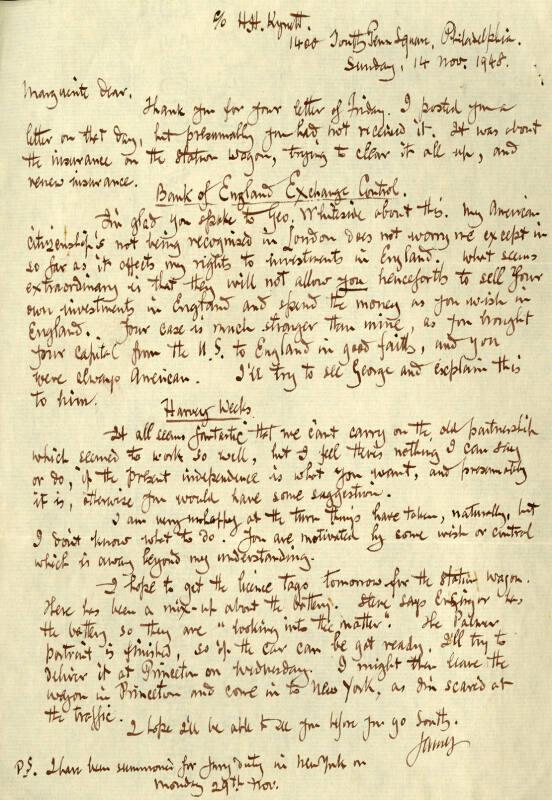 c/o H.H. Kynett.
1400 South Penn Square, Philadelphia.
Sunday, 14 Nov. 1948.
Marguerite dear.
Thank you for your letter of Friday. I posted you a
letter on that day, but presumably you had not received it. It was about
the insurance on the station wagon, trying to clear it all up, and
renew insurance.
Bank of England Exchange Control.
I'm glad you spoke to Geo. Whiteside about this. My American
citizenship's not being recognised in London does not worry me except in
so far as it affects my rights to investments in England. What seems
extraordinary is that they will not allow you henceforth to sell your
own investments in England and spend the money as you wish in
England. Your case is much stronger than mine, as you brought
your capital from the U.S. to England in good faith, and you
were always American. I'll try to see George and explain this
to him.
Harvey Weeks.
It all seems fantastic that we can't carry on the old partnership
which seemed to work so well, but I feel there's nothing I can say
or do, if the present independence is what you want, and presumably
it is, otherwise you would have some suggestion.
I am very unhappy at the turn things have taken, naturally, but
I don't know what to do. You are motivated by some wish or control
which is away beyond my understanding.
I hope to get the licence tags tomorrow for the station wagon.
There has been a mix-up about the battery. Steve says has
the battery so they are "looking into the matter". The Palmer
portrait is finished, so if the car can be got ready, I'll try to
deliver it at Princeton on Wednesday. I might then leave the
wagon in Princeton and come in to New York, as I'm scared at
the traffic.
I hope I'll be able to see you before you go South.
P.S. I have been summoned for Jury duty in New York on
Monday 29th Nov.